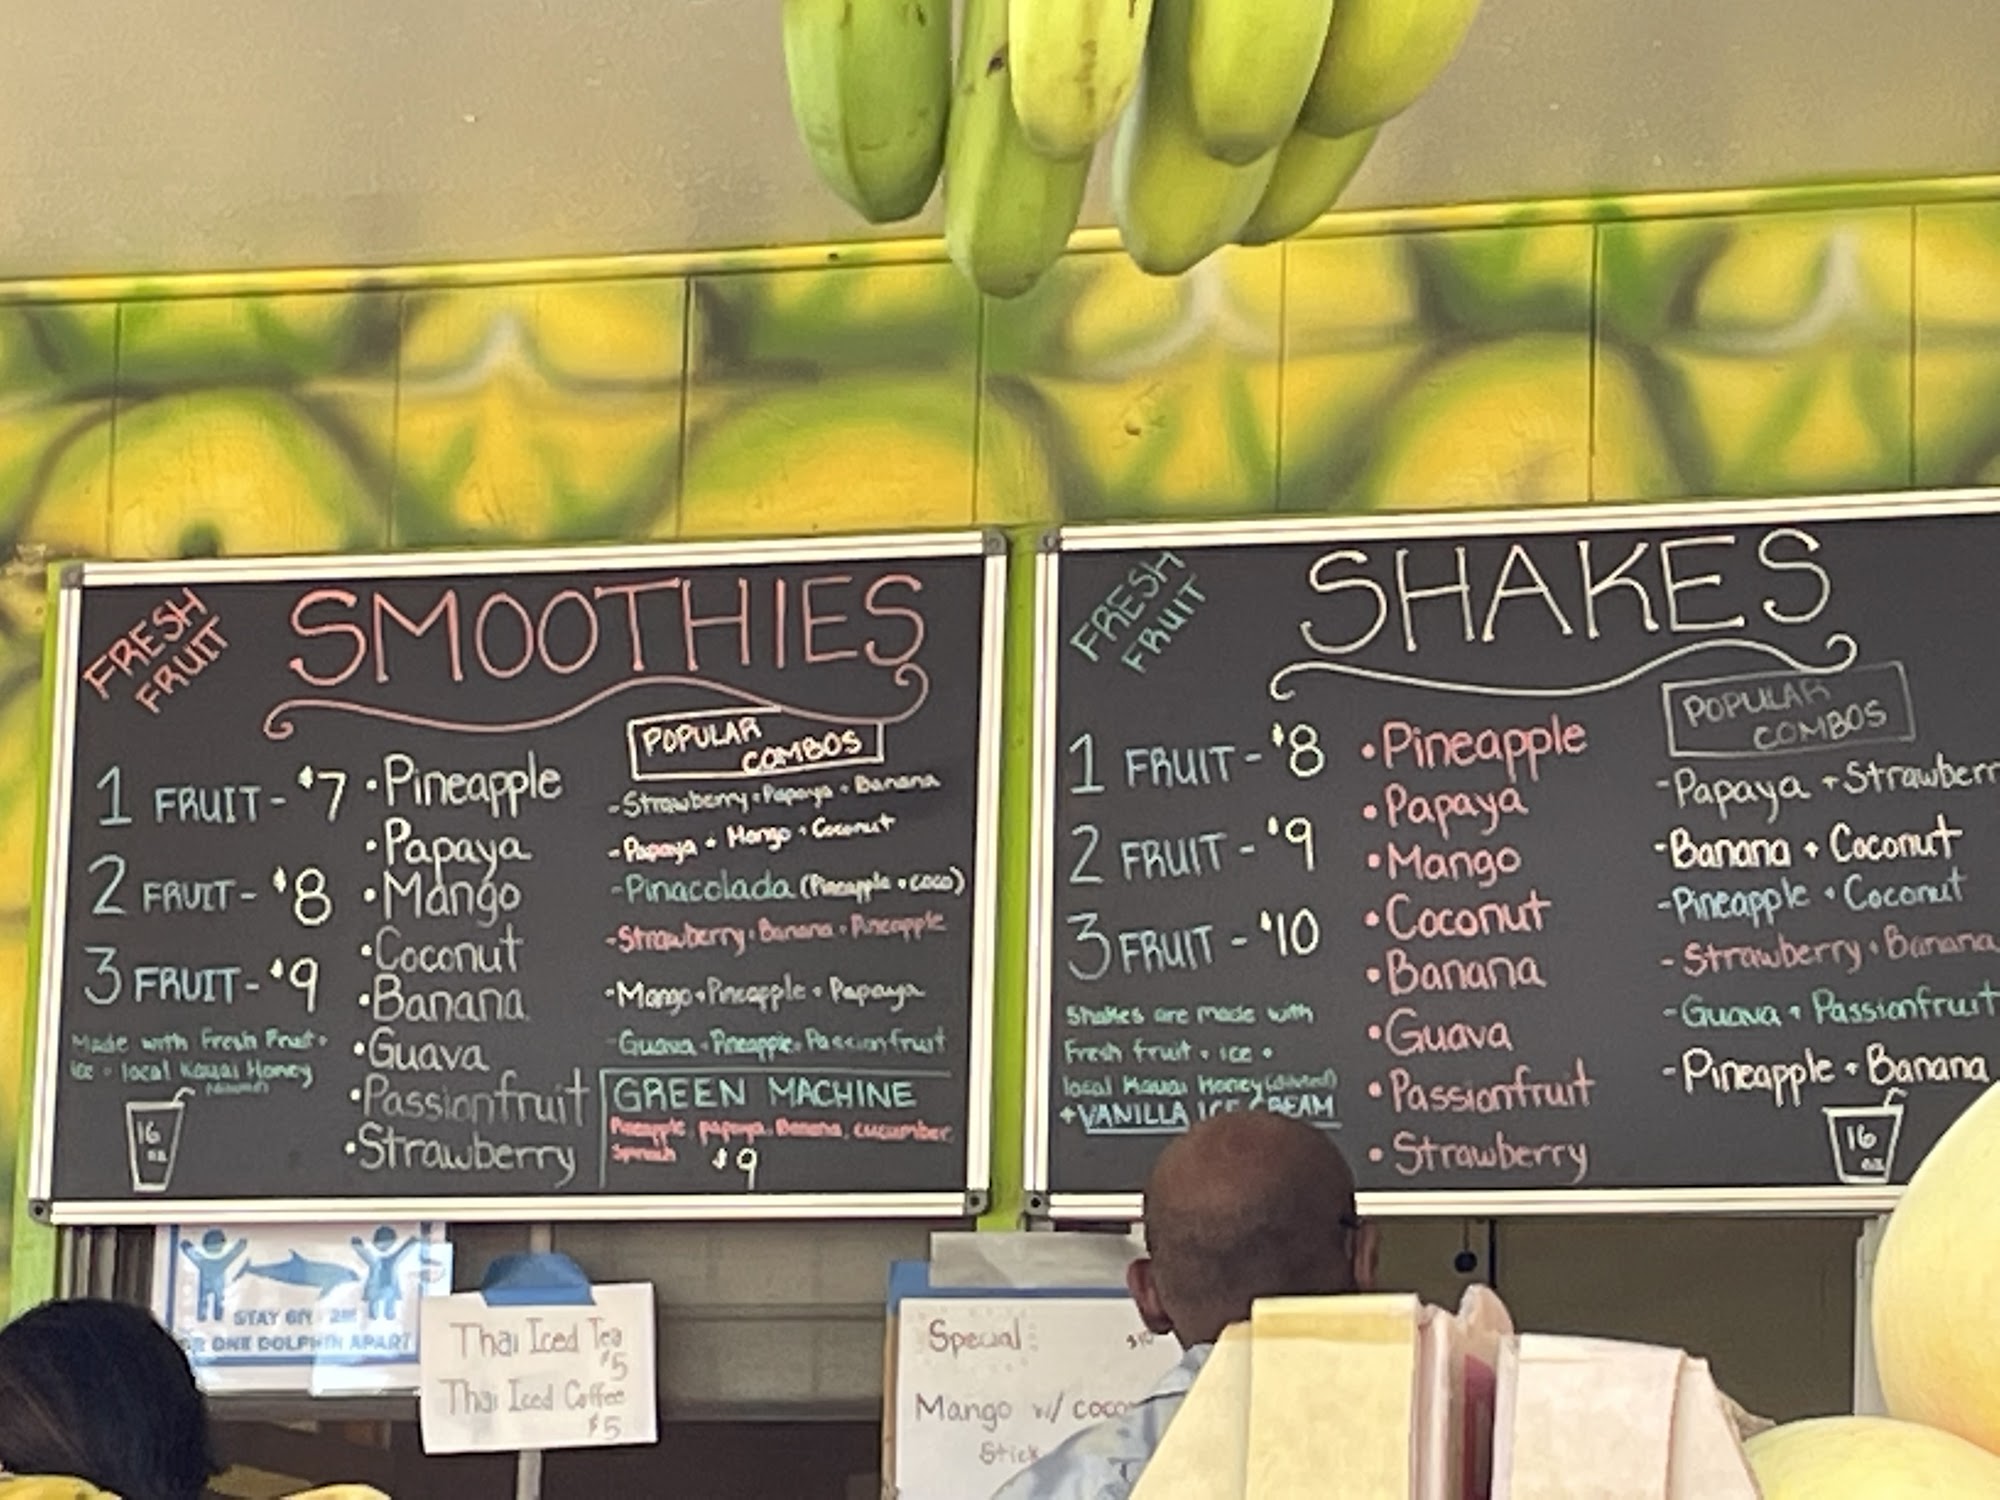 FRESH
FRUIT
SMOOTHIES
1 FRUIT - $7
2 FRUIT - $8
3 FRUIT - $9
Made with Fresh Fruit •
ice • local Kauai Honey
16
oz
• Pineapple
• Papaya
• Mango
• Coconut
• Banana
• Guava
• Passionfruit
• Strawberry
POPULAR
COMBOS
- Strawberry • Papaya • Banana
- Papaya • Mango • Coconut
- Pinacolada (Pineapple • coco)
- Strawberry • Banana • Pineapple
- Mango • Pineapple • Papaya
- Guava • Pineapple • Passionfruit
GREEN MACHINE
Pineapple, papaya, Banana, cucumber,
Spinach
$9
FRESH
FRUIT
SHAKES
1 FRUIT - $8
2 FRUIT - $9
3 FRUIT - $10
Shakes are made with
Fresh fruit • ice •
local Kauai Honey (diluted)
+ VANILLA ICE CREAM
• Pineapple
• Papaya
• Mango
• Coconut
• Banana
• Guava
• Passionfruit
• Strawberry
POPULAR
COMBOS
- Papaya + Strawberr
- Banana + Coconut
- Pineapple • Coconut
- Strawberry • Banana
- Guava • Passionfruit
- Pineapple • Banana
16
oz
STAY 6ft
ONE DOLPHIN APART
Thai Iced Tea
$5
Thai Iced Coffee
$5
Special
Mango w/ coco
Stick